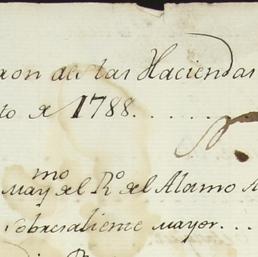 de las Haciendas
to de 1788......
N.
mo
May del Rº del Alamo
Sobresaliente mayor...